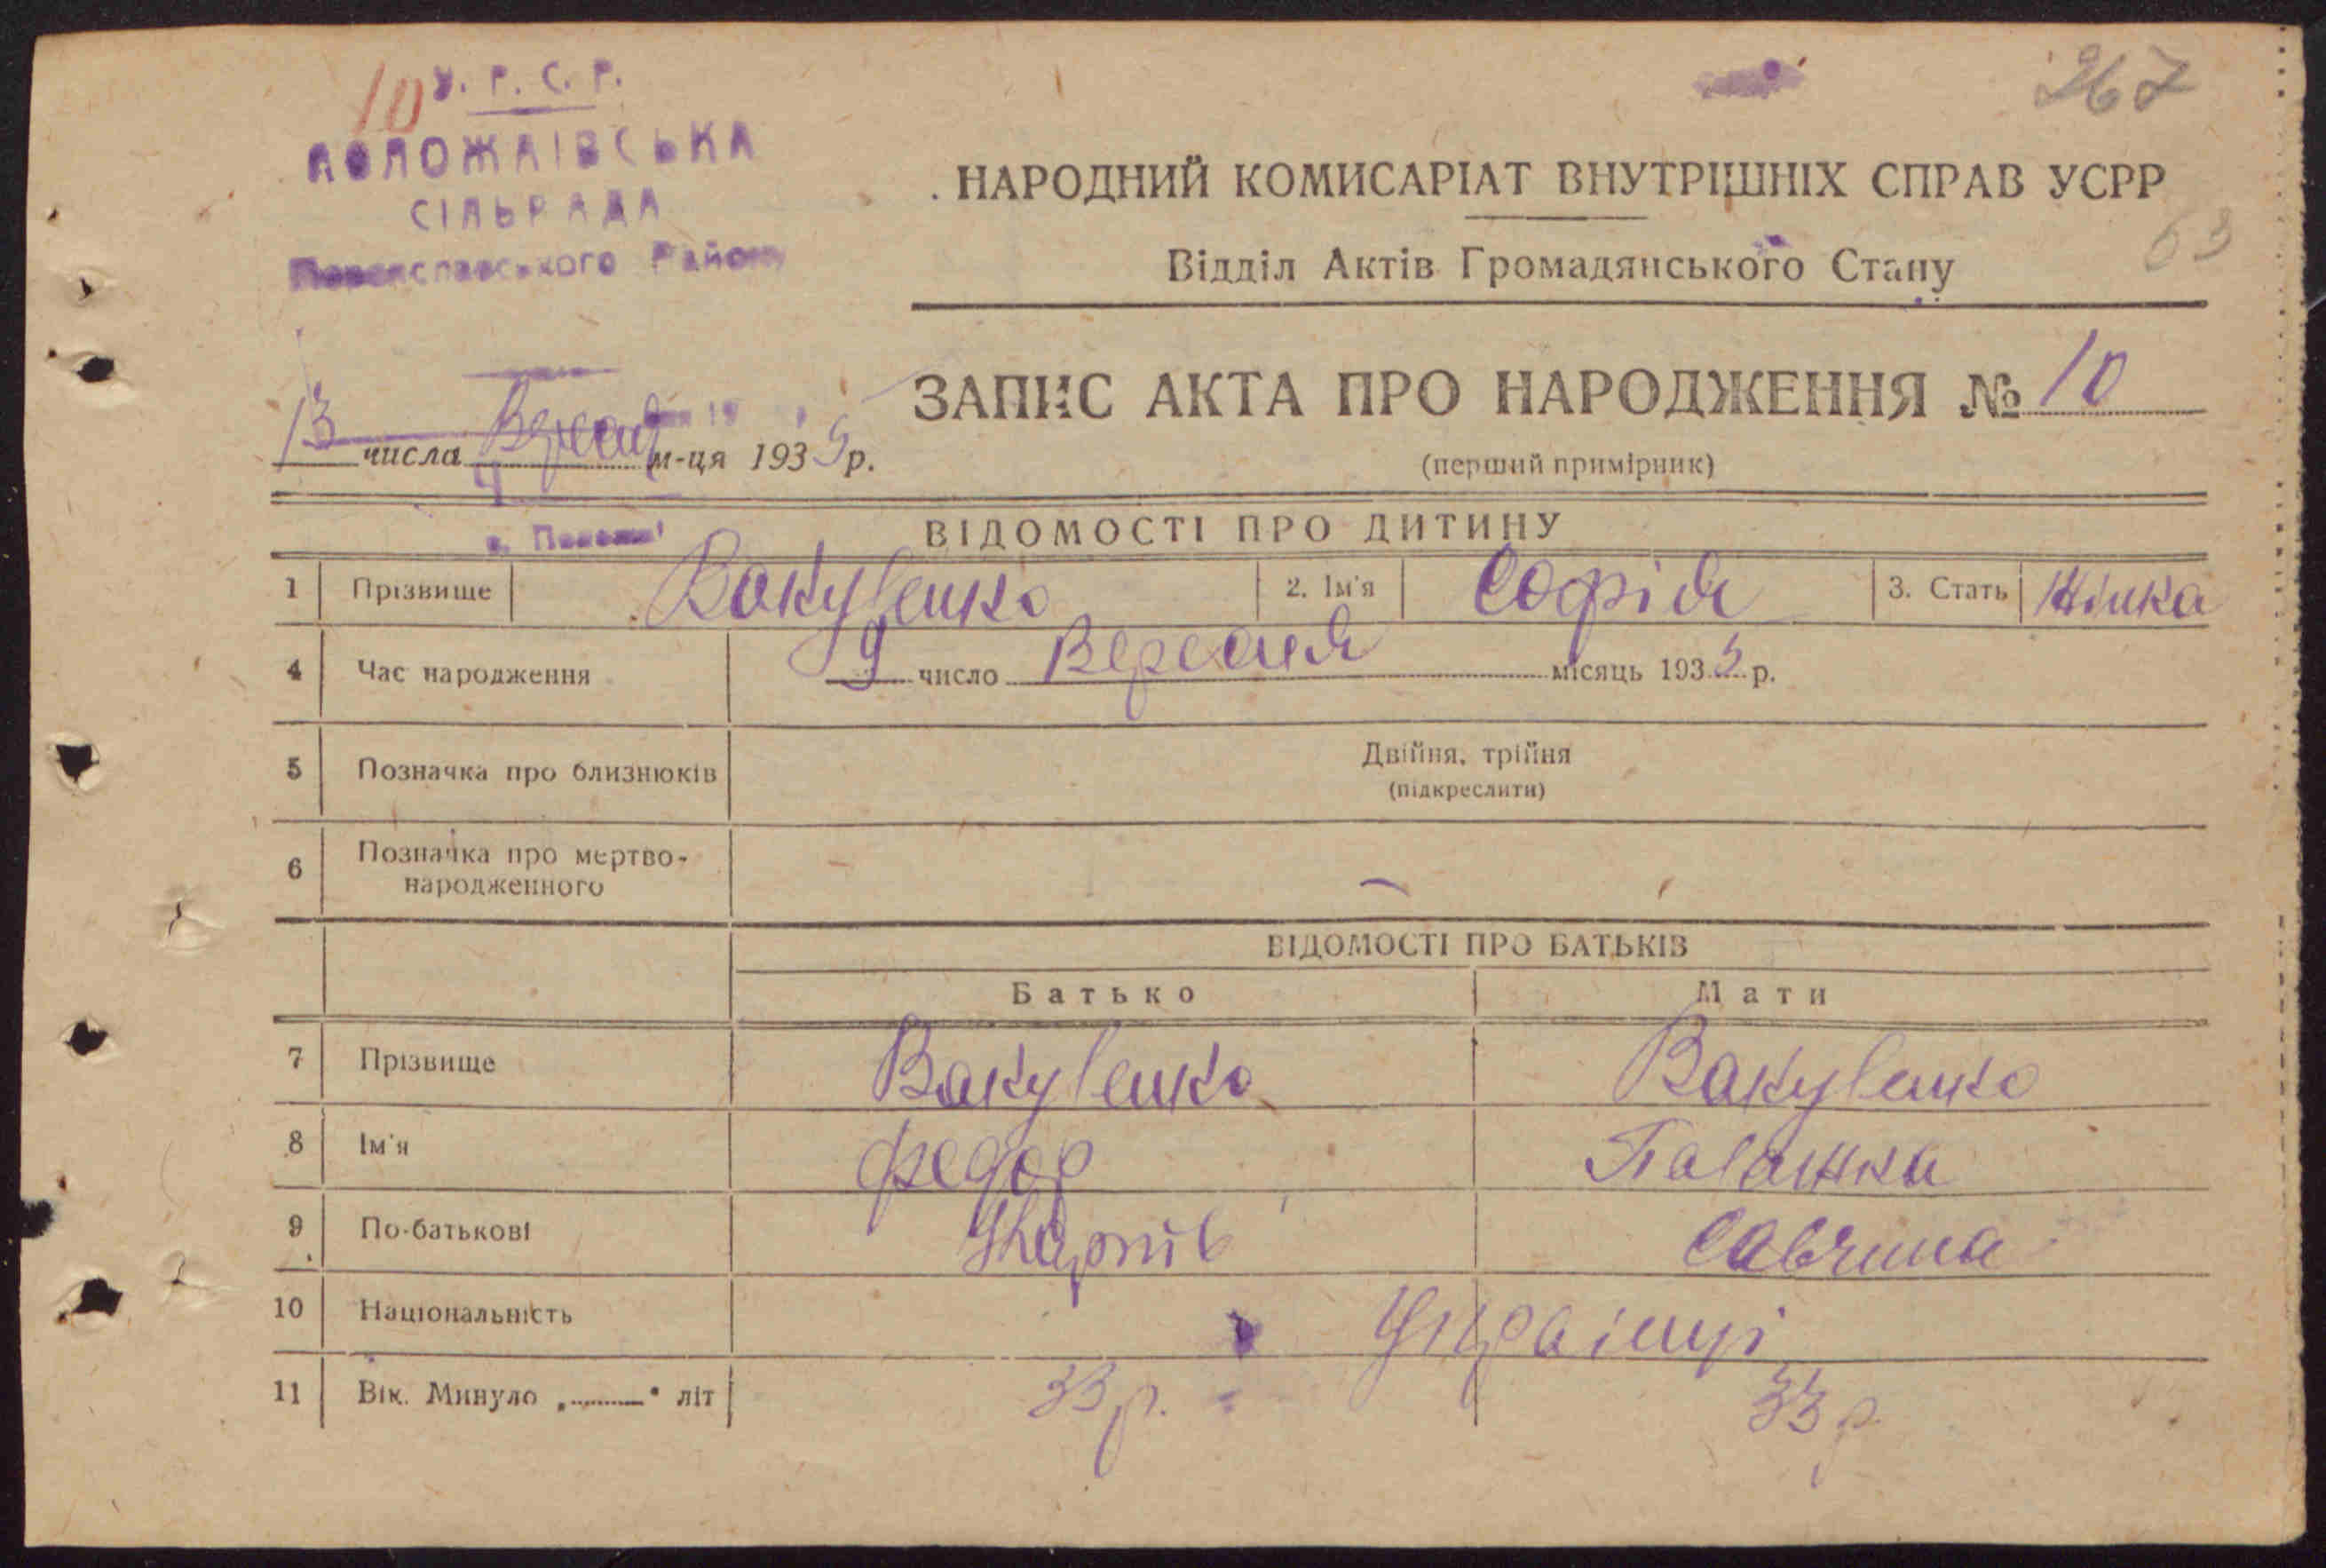 10
У. Р. С. Р.
ПОЛОЖАІВСЬКА
СІЛЬРАДА
Переяславського Району
267
НАРОДНИЙ КОМИСАРІАТ ВНУТРІШНІХ СПРАВ УСРР
63
Відділ Актів Громадянського Стану
ЗАПИС АКТА ПРО НАРОДЖЕННЯ № 10
(перший примірник)
13 числа Вересня м-ця 1935 р.
ВІДОМОСТІ ПРО ДИТИНУ
1 Прізвище Вакуленко 2. Ім'я Софія 3. Стать Жінка
4 Час народження 9 число Вересня місяць 1935 р.
5 Позначка про близнюків Двійня, трійня
(підкреслити)
6 Позначка про мертво-
народженного —
ВІДОМОСТІ ПРО БАТЬКІВ
Батько Мати
7 Прізвище Вакуленко Вакуленко
8 Ім'я Федор Палажка
9 По-батькові Карпів Савчина
10 Національність Українці
11 Вік. Минуло „ " літ 33 р. 33 р.